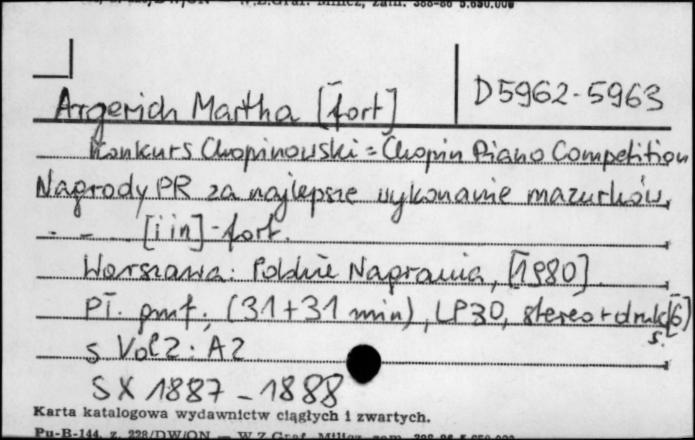 W.Z.Graf. Milicz, zam. 388-86 5.650.000
Argerich Martha [fort]
D5962-5963
Konkurs Chopinowski = Chopin Piano Competition
Nagrody PR za najlepsze wykonanie mazurków,
- - [i in] - fort.
Warszawa: Polskie Nagrania, [1980]
Pł. pmf.; (31+31 min), LP30, stereo + druk [6] s.
s Vol 2: A2
SX 1887 - 1888
Karta katalogowa wydawnictw ciągłych i zwartych.
Pu-B-144, z. 228/DW/ON — W.Z.Graf. Milicz, zam. 388-86 5.650.000